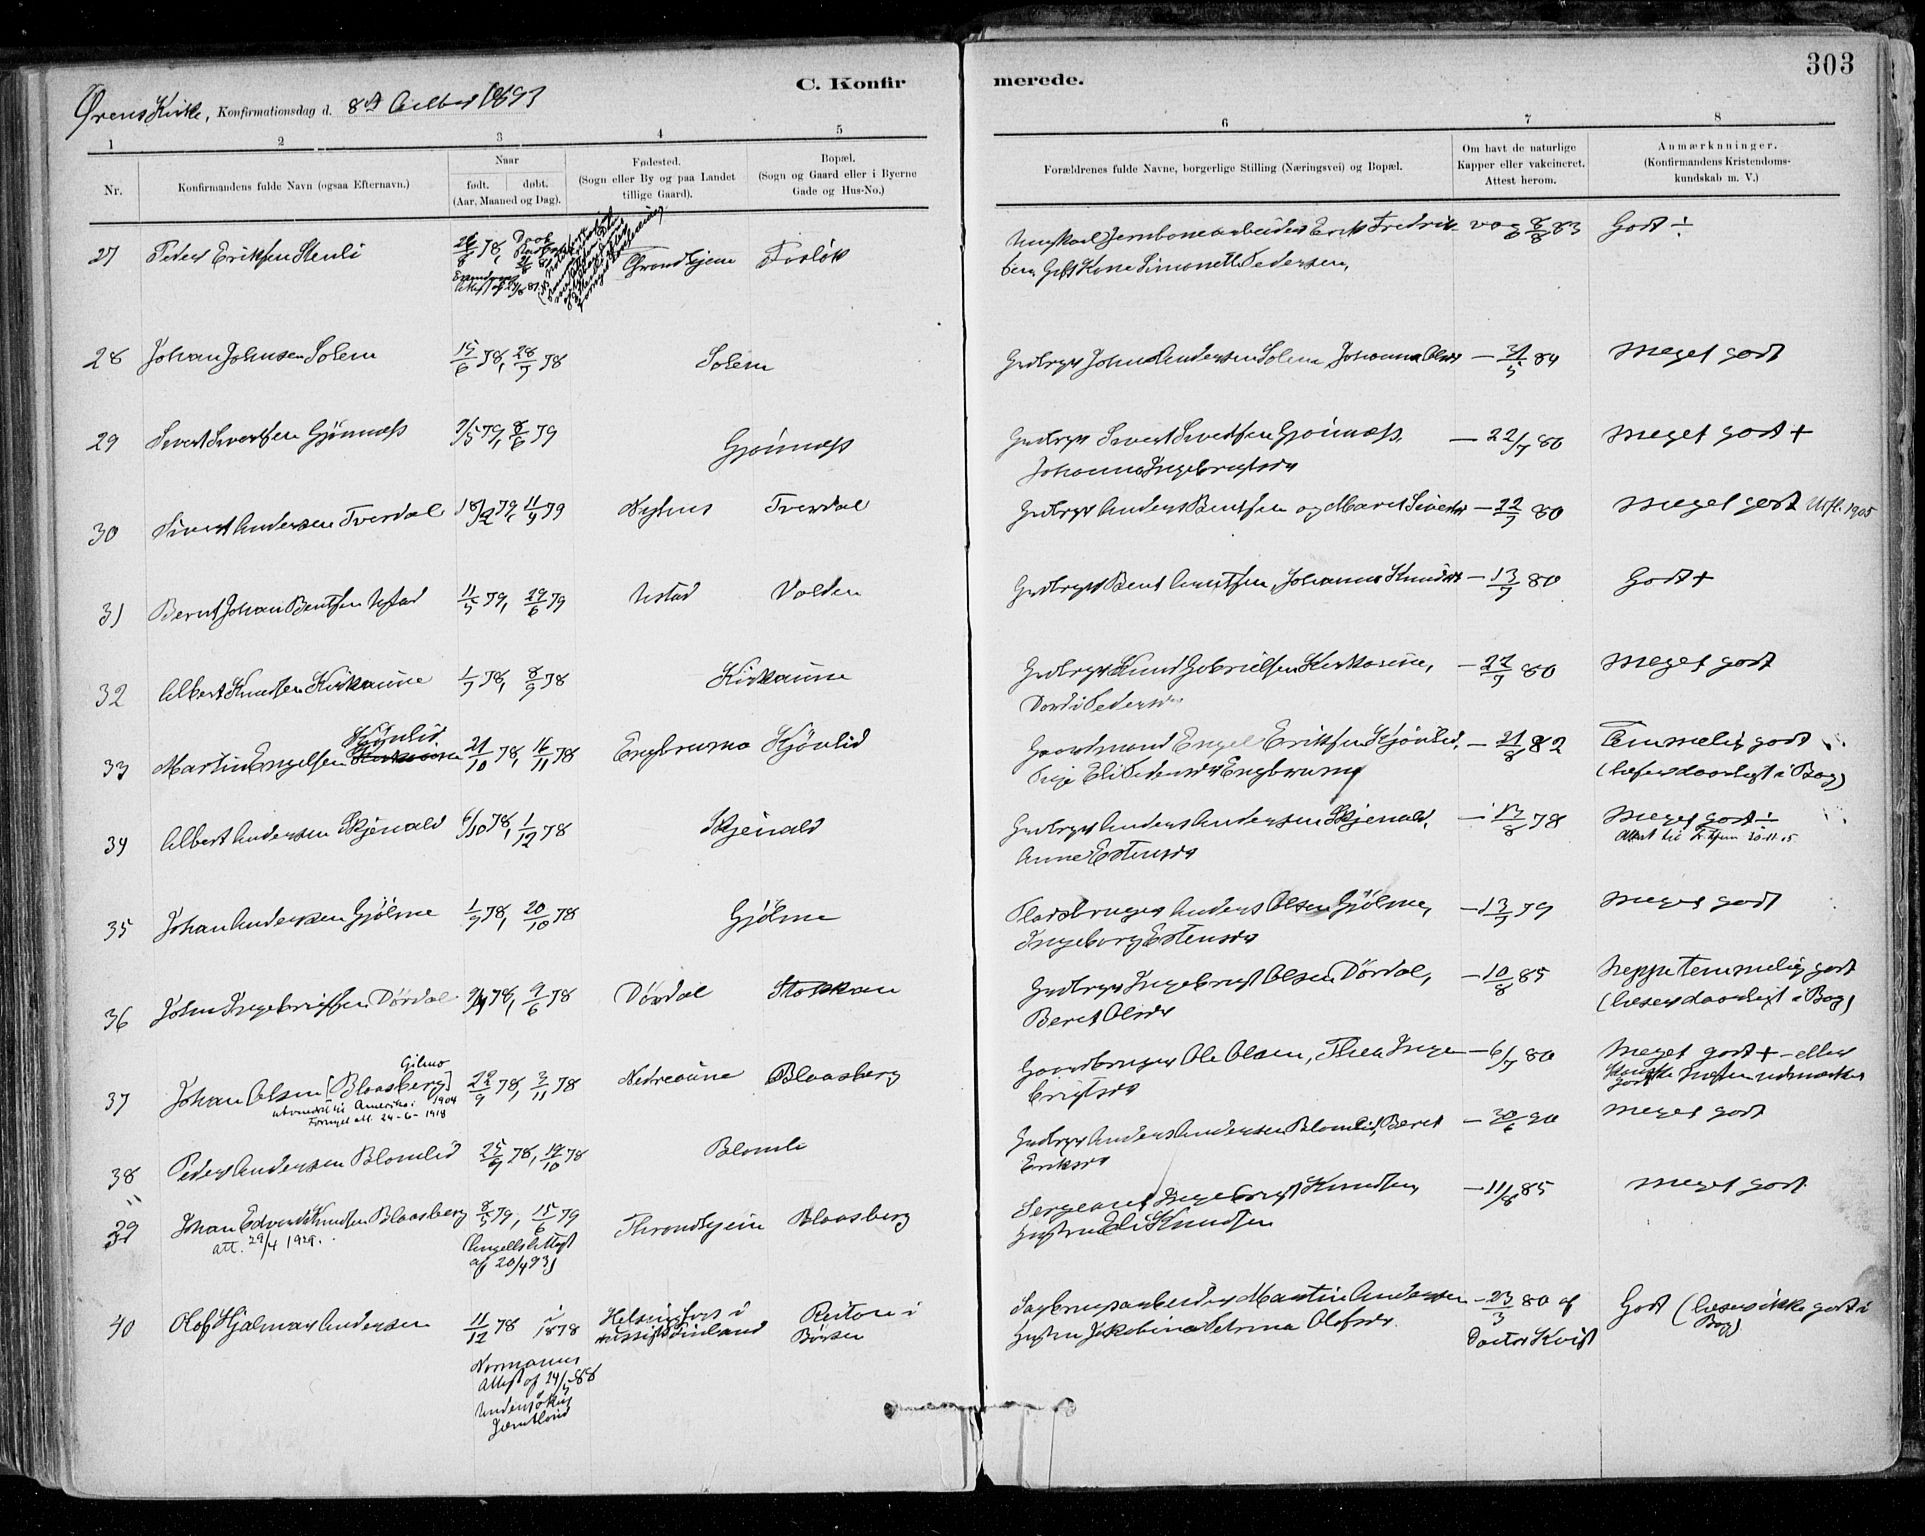 303
C. Konfirmerede.
Ørens Kirke, Konfirmationsdag d. 8de Oktbr 1893
1 2 3 4 5 6 7 8
Nr.
Konfirmandens fulde Navn (ogsaa Efternavn.)
Naar
født. døbt.
(Aar, Maaned og Dag).
Fødested.
(Sogn eller By og paa Landet
tillige Gaard).
Bopæl.
(Sogn og Gaard eller i Byerne
Gade og Hus-No.)
Forældrenes fulde Navne, borgerlige Stilling (Næringsvei) og Bopæl.
Om havt de naturlige
Kapper eller vakcineret.
Attest herom.
Anmærkninger.
(Konfirmandens Kristendoms-
kundskab m. V.)
27 Peder Eriksen Stenli Trondhjem Jernbanearbeider Erik Fredrik- vac 6/8 83 Godt ÷
sen Gift Kone Simonette Pedersen,
28 Johan Johnsen Solem 15/6 78, 28/7 78 Solem Grdbrgr John Andersen Solem, Johanna Olsdr – 31/5 84 Meget godt
29 Sivert Sivertsen Gjønnæss 9/5 79, 8/6 79 Gjønnæss Grdbrgr Sivert Sivertsen Gjønnæss, – 22/7 80 Meget godt +
Johanna Ingebrigtsdr
30 Sivert Andersen Tverdal 18/2 79, 11/4 79 Nyhus Tverdal Grdbrgr Anders Bentsen og Maret Sivertsdr – 22/7 80 Meget godt Utfl. 1905
31 Bernt Johan Bentsen Ustad 11/5 79, 29/6 79 Ustad Volden Grdbrgr Bent Arntsen, Johanna Knudsdr – 13/7 80 Godt +
32 Albert Knudsen Kirkaune 1/7 78, 8/9 78 Kirkaune Grdbrgr Knud Gabrielsen Kirkaune, – 22/7 80 Meget godt
Dordi Pedersdr
33 Martin Engelsen Kjønlid 21/10 78, 16/11 78 Engbruma Kjønlid Gaardmand Engel Eriksen Kjønlid, – 21/8 82 Temmelig godt
Pige Eli Pedersdr Engbrum (læser daarligt i Bog)
34 Albert Andersen Skjenald 6/10 78, 1/12 78 Skjenald Grdbrgr Anders Andersen Skjenald, – 17/8 78 Meget godt ÷
Anne Estensdr Attest til Tr.hjem 30-11-15
35 Johan Andersen Gjølme 1/9 78, 20/10 78 Gjølme Pladsbruger Anders Olsen Gjølme, – 13/7 79 Meget godt
Ingeborg Estensdr
36 John Ingebrigtsen Dørdal 9/4 78, 9/6 78 Dørdal Stokkan Grdbrgr Ingebrigt Olsen Dørdal, – 10/8 85 Neppe Temmelig godt
Beret Olsdr (læser daarligt i Bog)
Gilmo
37 Johan Olsen [Blaasberg] 22/9 78, 3/11 78 Nedreaune Blaasberg Gaardbruger Ole Olsen, Thea Inge- – 6/7 80 Meget godt + eller
utvandret til Amerika: 1904 brigtsdr
Fornyet att. 24-6-1918
38 Peder Andersen Blomlid 25/9 78, 19/10 78 Blomli Grdbrgr Anders Andersen Blomlid, Beret – 30/6 90 Meget godt
Eriksdr
39 Johan Edvard Knudsen Blaasberg 8/5 79, 15/6 79 Throndhjem Blaasberg Sergeant Ingebrigt Knudsen, – 11/8 85 Meget godt
att. 29/4 1929. Hustru Eli Knudsen
af 20/4 93)
40 Olof Hjalmar Andersen 11/12 78 i 1878 Helsingfors i Finland i Børsen Sagbrugsarbeider Martin Andersen – 23/3 80 af Godt (læser ikke godt i
Hustru Jakobina Petrina Olofsdr. Doctor Kvist Bog)
Normanns
Attest af
Undersåker
Jæmtland